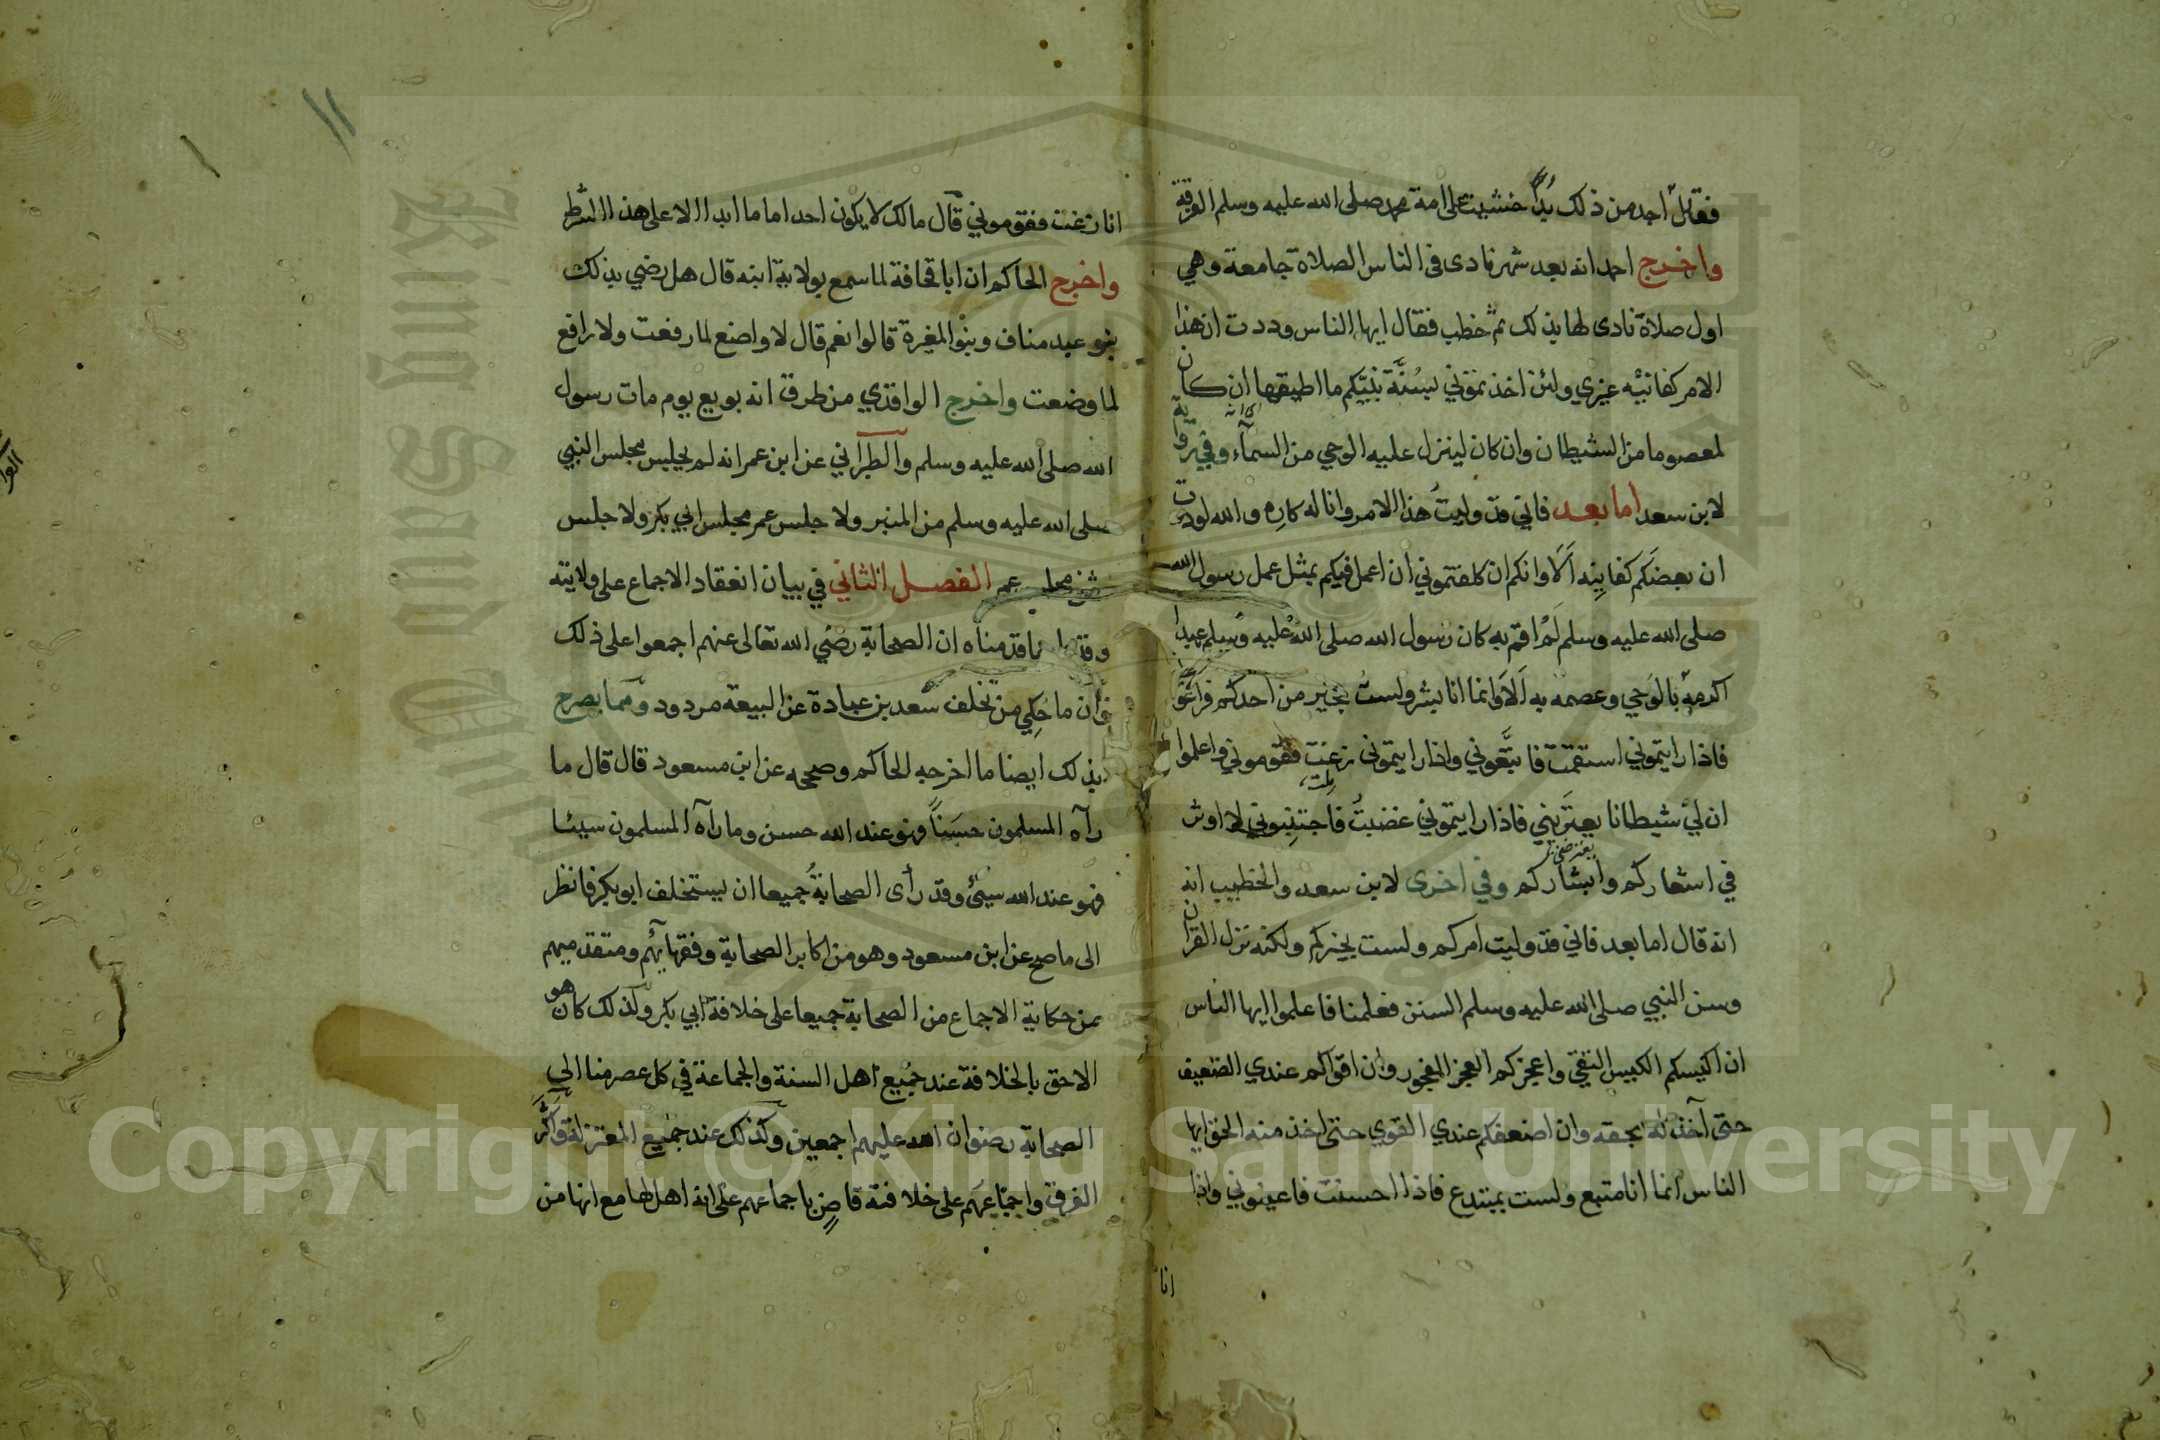 فقال لم اجد من ذلك بُدّاً خشيت على امة محمد صلى الله عليه وسلم الفرقة
واخرج احمد انه بعد شهر نادى فى الناس الصلاة جامعة وهي
اول صلاة نادى لها بذلك ثم خطب فقال ايها الناس وددت ان هذا
الامر كفانيه غيري ولئن اخذتموني بسُنَّة نبيّكم ما اطيقها ان كان
لمعصوما من الشيطان وان كان لينزل عليه الوحي من السماء وفي رواية
لابن سعد اما بعد فاني قد وليتُ هذا الامر وانا له كارِه والله لوددت
ان بعضكم كفانِيه اَلَا وانكم ان كلفتموني ان اعمل فيكم بمثل عمل رسول الله
صلى الله عليه وسلم لَمْ اقم به كان رسول الله صلى الله عليه وسلم عبدا
اكرمه بالوحي وعصمه به اَلَا وانما انا بشر ولست بخير من احدكم فراعوني
فاذا رايتموني استقمت فاتبَّعوني واذا رايتموني زغت فقوموني واعلموا
ان لي شيطانا يعتَريني فاذا رايتموني غضبتُ فاجتنِبوني لا اوثر
في اشعاركم وابشاركم وفي اخرى لابن سعد والخطيب انه
انه قال اما بعد فاني قد وليت امركم ولست بخيركم ولكنه نزل القرآن
وسن النبي صلى الله عليه وسلم السنن فعلمنا فاعلموا ايها الناس
ان اكيسكم الكيس التقي واعجزكم العجز الفجور وان اقواكم عندي الضعيف
حتى آخذ له بحقه وان اضعفكم عندي القوي حتى اخذ منه الحق ايها
الناس انما انا متبع ولست بمبتدع فاذا احسنت فاعينوني واذا
انا
١١
انا زغت فقوموني قال مالك لا يكون احد اماما ابدا الا على هذا الشرط
واخرج الحاكم ان ابا قحافة لما سمع بولاية ابنه قال هل رضي بذلك
بنو عبد مناف وبنو المغيرة قالوا نعم قال لا واضع لما رفعت ولا رافع
لما وضعت واخرج الواقدي من طرق انه بويع يوم مات رسول
الله صلى الله عليه وسلم والطبراني عن ابن عمر انه لم يجلس مجلس النبي
صلى الله عليه وسلم من المنبر ولا جلس عمر مجلس ابي بكر ولا جلس
مجلس عمر الفصل الثاني في بيان انعقاد الاجماع على ولايته
قدمناه ان الصحابة رضي الله تعالى عنهم اجمعوا على ذلك
وان ما حُكي من تخلف سعد بن عبادة عن البيعة مردود ومما يصرح
بذلك ايضا ما اخرجه الحاكم وصححه عن ابن مسعود قال قال ما
رآه المسلمون حسَناً فهو عند الله حسن وما رآه المسلمون سيئا
فهو عند الله سيئ وقد رأى الصحابةُ جميعا ان يستخلف ابو بكر فانظر
الى ما صح عن ابن مسعود وهو من اكابر الصحابة وفقهائهم ومتقدميهم
من حكاية الاجماع من الصحابة جميعا على خلافة ابي بكر ولذلك كان هو
الاحق بالخلافة عند جميع اهل السنة والجماعة في كل عصر منا الى
الصحابة رضوان الله عليهم اجمعين وكذلك عند جميع المعتزلة واكثر
الفرق واجماعهم على خلافته قاضٍ باجماعهم على انه اهل لها مع انها من
Copyright © King Saud University